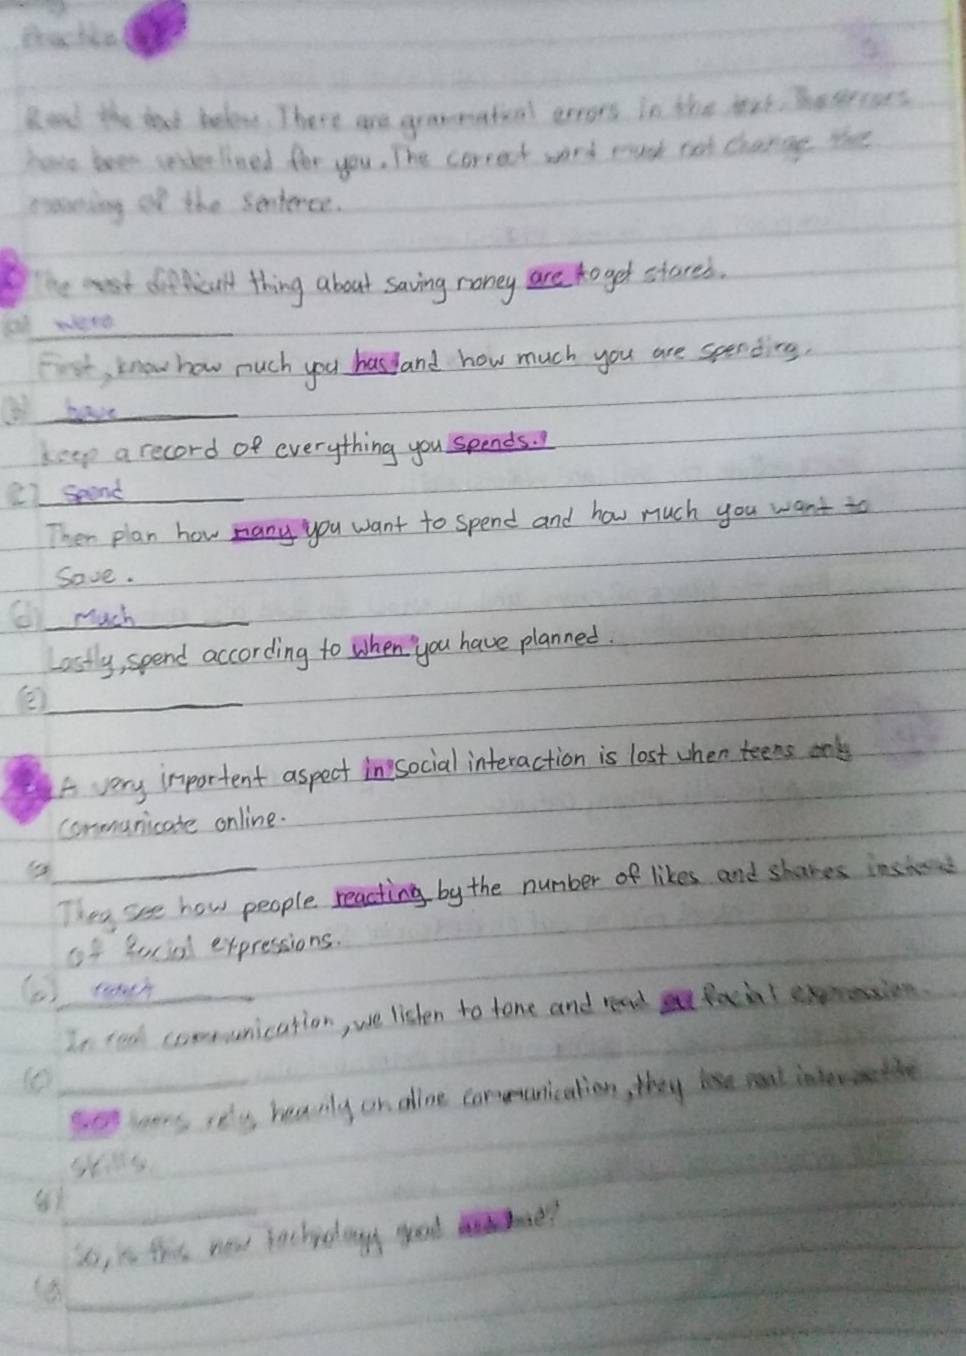 Practice
Read the text below. There are grammatical errors in the text. The errors
have been underlined for you. The correct word must not change the
meaning of the sentence.
The most difficult thing about saving money are to get stared.
(a) were
First, know how much you has and how much you are spending.
(b) have
keep a record of everything you spends.
(c) spend
Then plan how many you want to spend and how much you want to
save.
(d) Much
Lastly, spend according to when you have planned.
(e)
A very importent aspect in social interaction is lost when teens only
communicate online.
(a)
They see how people reacting by the number of likes and shares instead
of facial expressions.
(b) react
In real communication, we listen to tone and read facial expression.
(c)
teens rely heavily on online communication, they lose real
skills.
(d)
So, is this new technology good
(e)